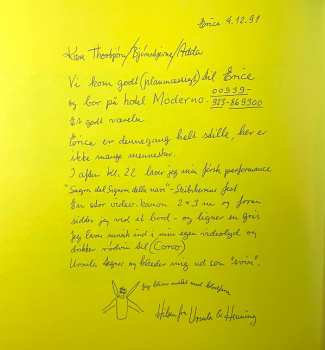 Erice 4.12.91
Kære Thorbjørn/Bjørnstjerne/Adda
Vi kom godt (planmæssigt) til Erice
og bor på hotel Moderno. 00939-
923-869300
Et godt værelse
Erice er dennegang helt stille, her er
ikke mange mennesker.
I aften kl. 22 laver jeg min første performance
"Sagra del Signore della nave" - Skibsherrens fest
En stor video-kanon 2 x 3 m og foran
sidder jeg ved et bord - og ligner en gris
Jeg laver musik ind i min egen videolyd og
drikker rødvin til (Corvo)
Ursula tegner og klæder mig ud som "svin".
Jeg bliver malet med
Hilsen fra
Ursula & Henning